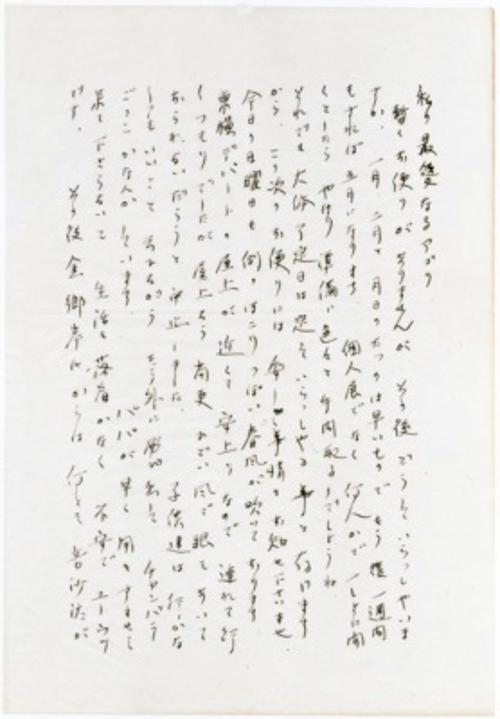 私の最愛なるアポリ
暫くお便りがありませんが その後どうしていらっしゃいま
すか、一月、二月と月日のたつのは早いもので もう後一週間
もすれば五月になります。個人展でなく何人かで一しょに開
くとしたら やはり準備に色々と手間取るでしょうね
それでも大体の定日は定っていらっしゃる事と存じます
から、この次のお便りには 事情をお知せ下さいませ。
今日の日曜日も例のほこりっぽい春風が吹いて おります
東横デパートの屋上が近くて安上りなので 連れて行
くつもりでしたが 屋上なら尚更 ひどい風で眼もあいて
おられないだろうと中止しました。子供達は行かな
くてもいいこと もう外に飛び出して チャンバラ
ごっこ かなんかしています パパが早く用をすませて
来て下さらないと 生活も落着かなく 不安で ユーウツ
です。その後金郷岸氏からは 何も 御沙汰が